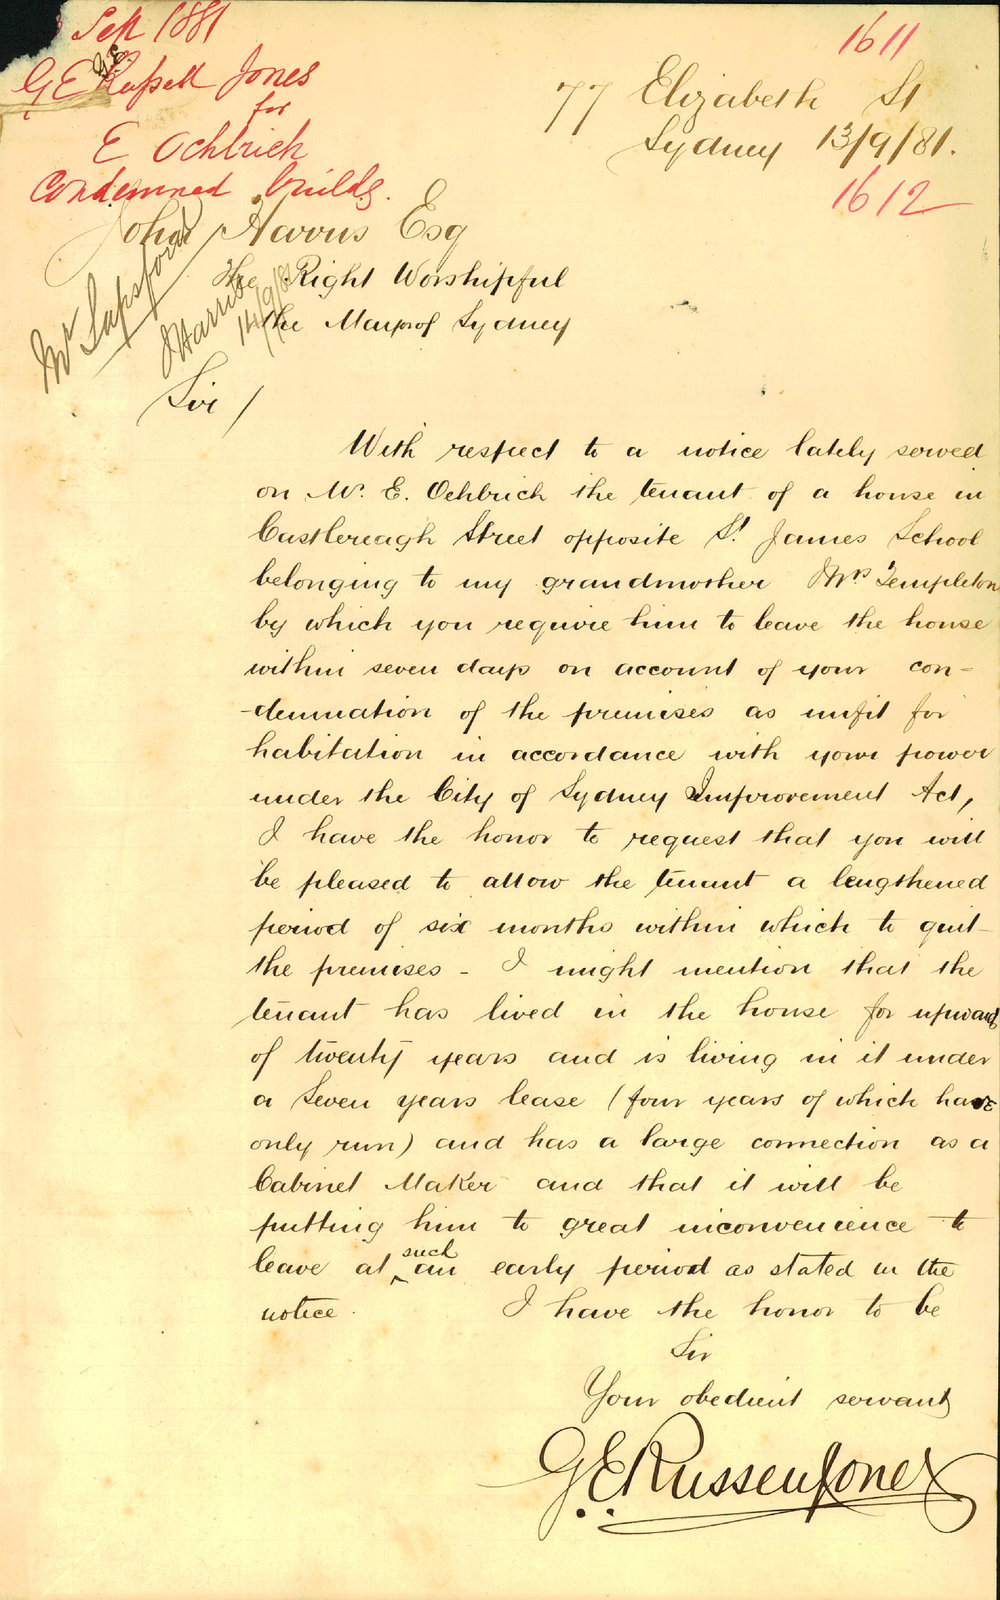 Sep 1881
G E Russell Jones
for
E Ochbrich
Condemned builds.
1611
77 Elizabeth St
Sydney 13/9/81.
1612
John Harris Esq
The Right Worshipful
the Mayor of Sydney
Mr Sapsford
J Harris
14/9/81
Sir /
With respect to a notice lately served
on Mr. E. Ochbrich the tenant of a house in
Castlereagh Street opposite St. James School
belonging to my grandmother Mrs Templeton
by which you require him to leave the house
within seven days on account of your con-
-demnation of the premises as unfit for
habitation in accordance with your power
under the City of Sydney Improvement Act,
I have the honor to request that you will
be pleased to allow the tenant a lengthened
period of six months within which to quit
the premises - I might mention that the
tenant has lived in the house for upwards
of twenty years and is living in it under
a Seven years lease (four years of which have
only run) and has a large connection as a
Cabinet Maker and that it will be
putting him to great inconvenience to
leave at such an early period as stated in the
notice. I have the honor to be
Sir
Your obedient servant
G. E. Russell Jones